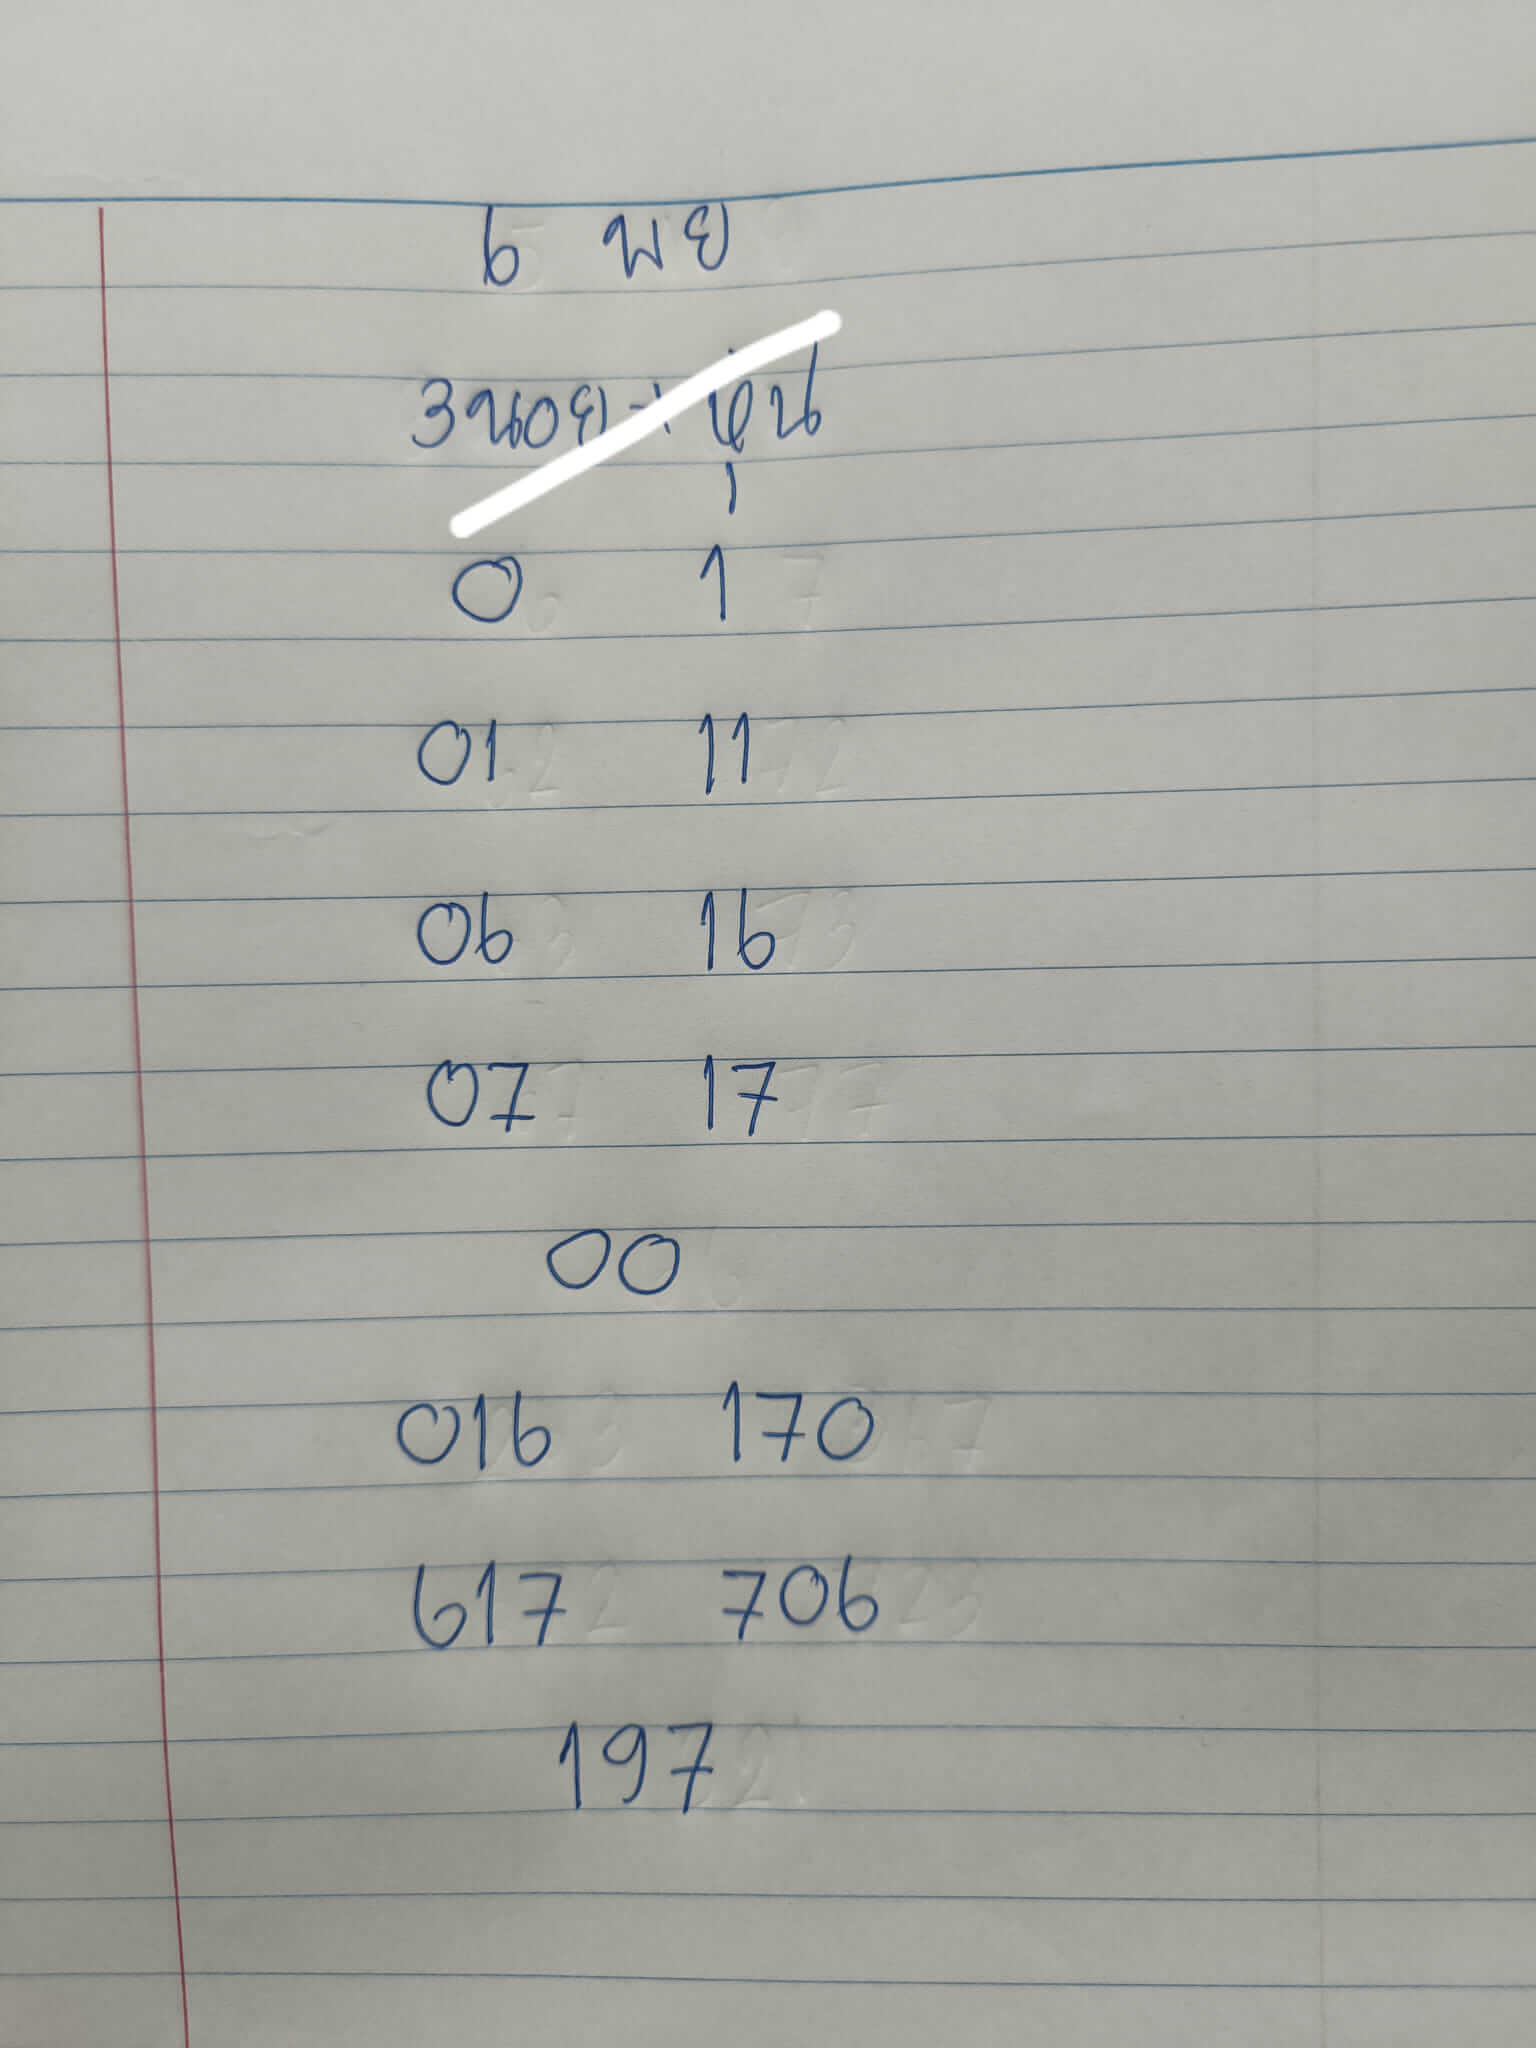 6 พย
0 1
01 11
06 16
07 17
00
016 170
617 706
197